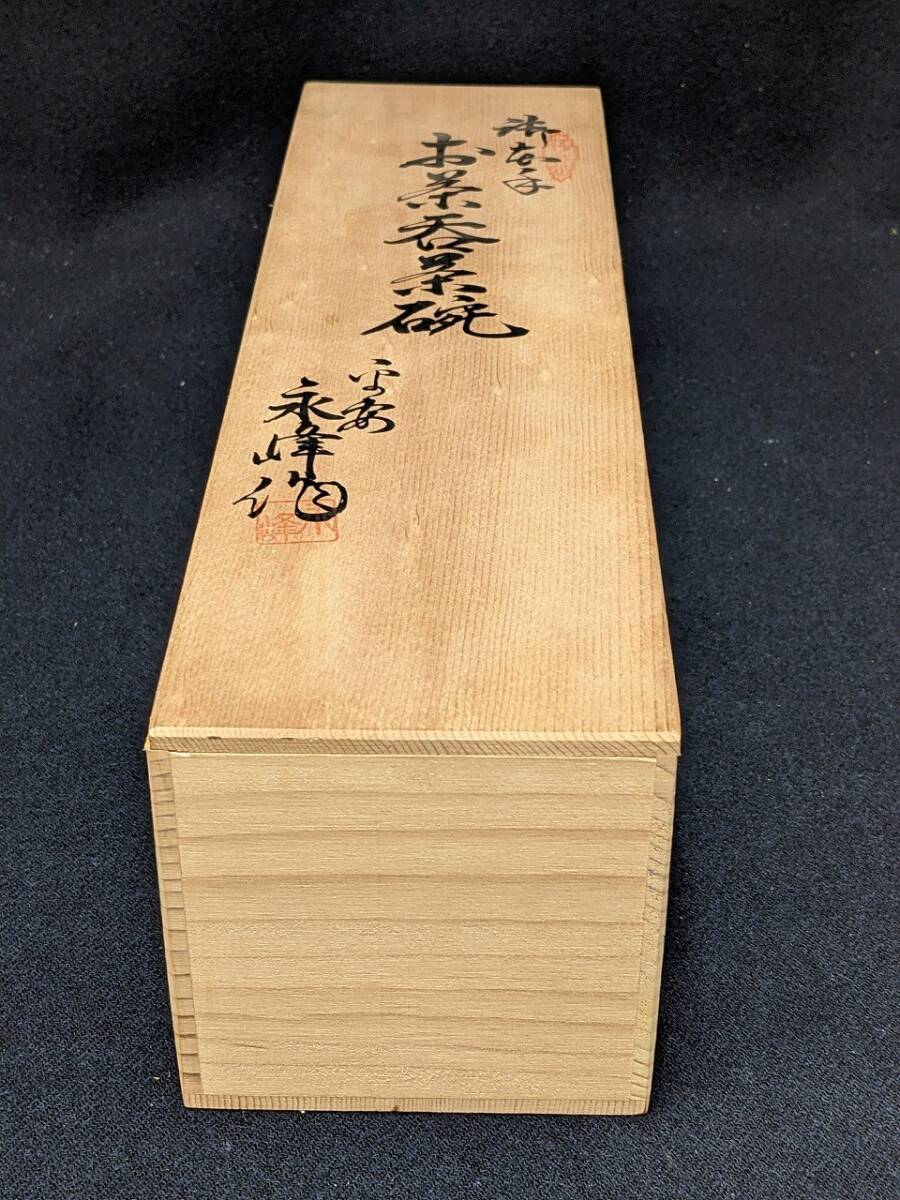 御本手
お茶呑茶碗
平安
永峰作
永峰